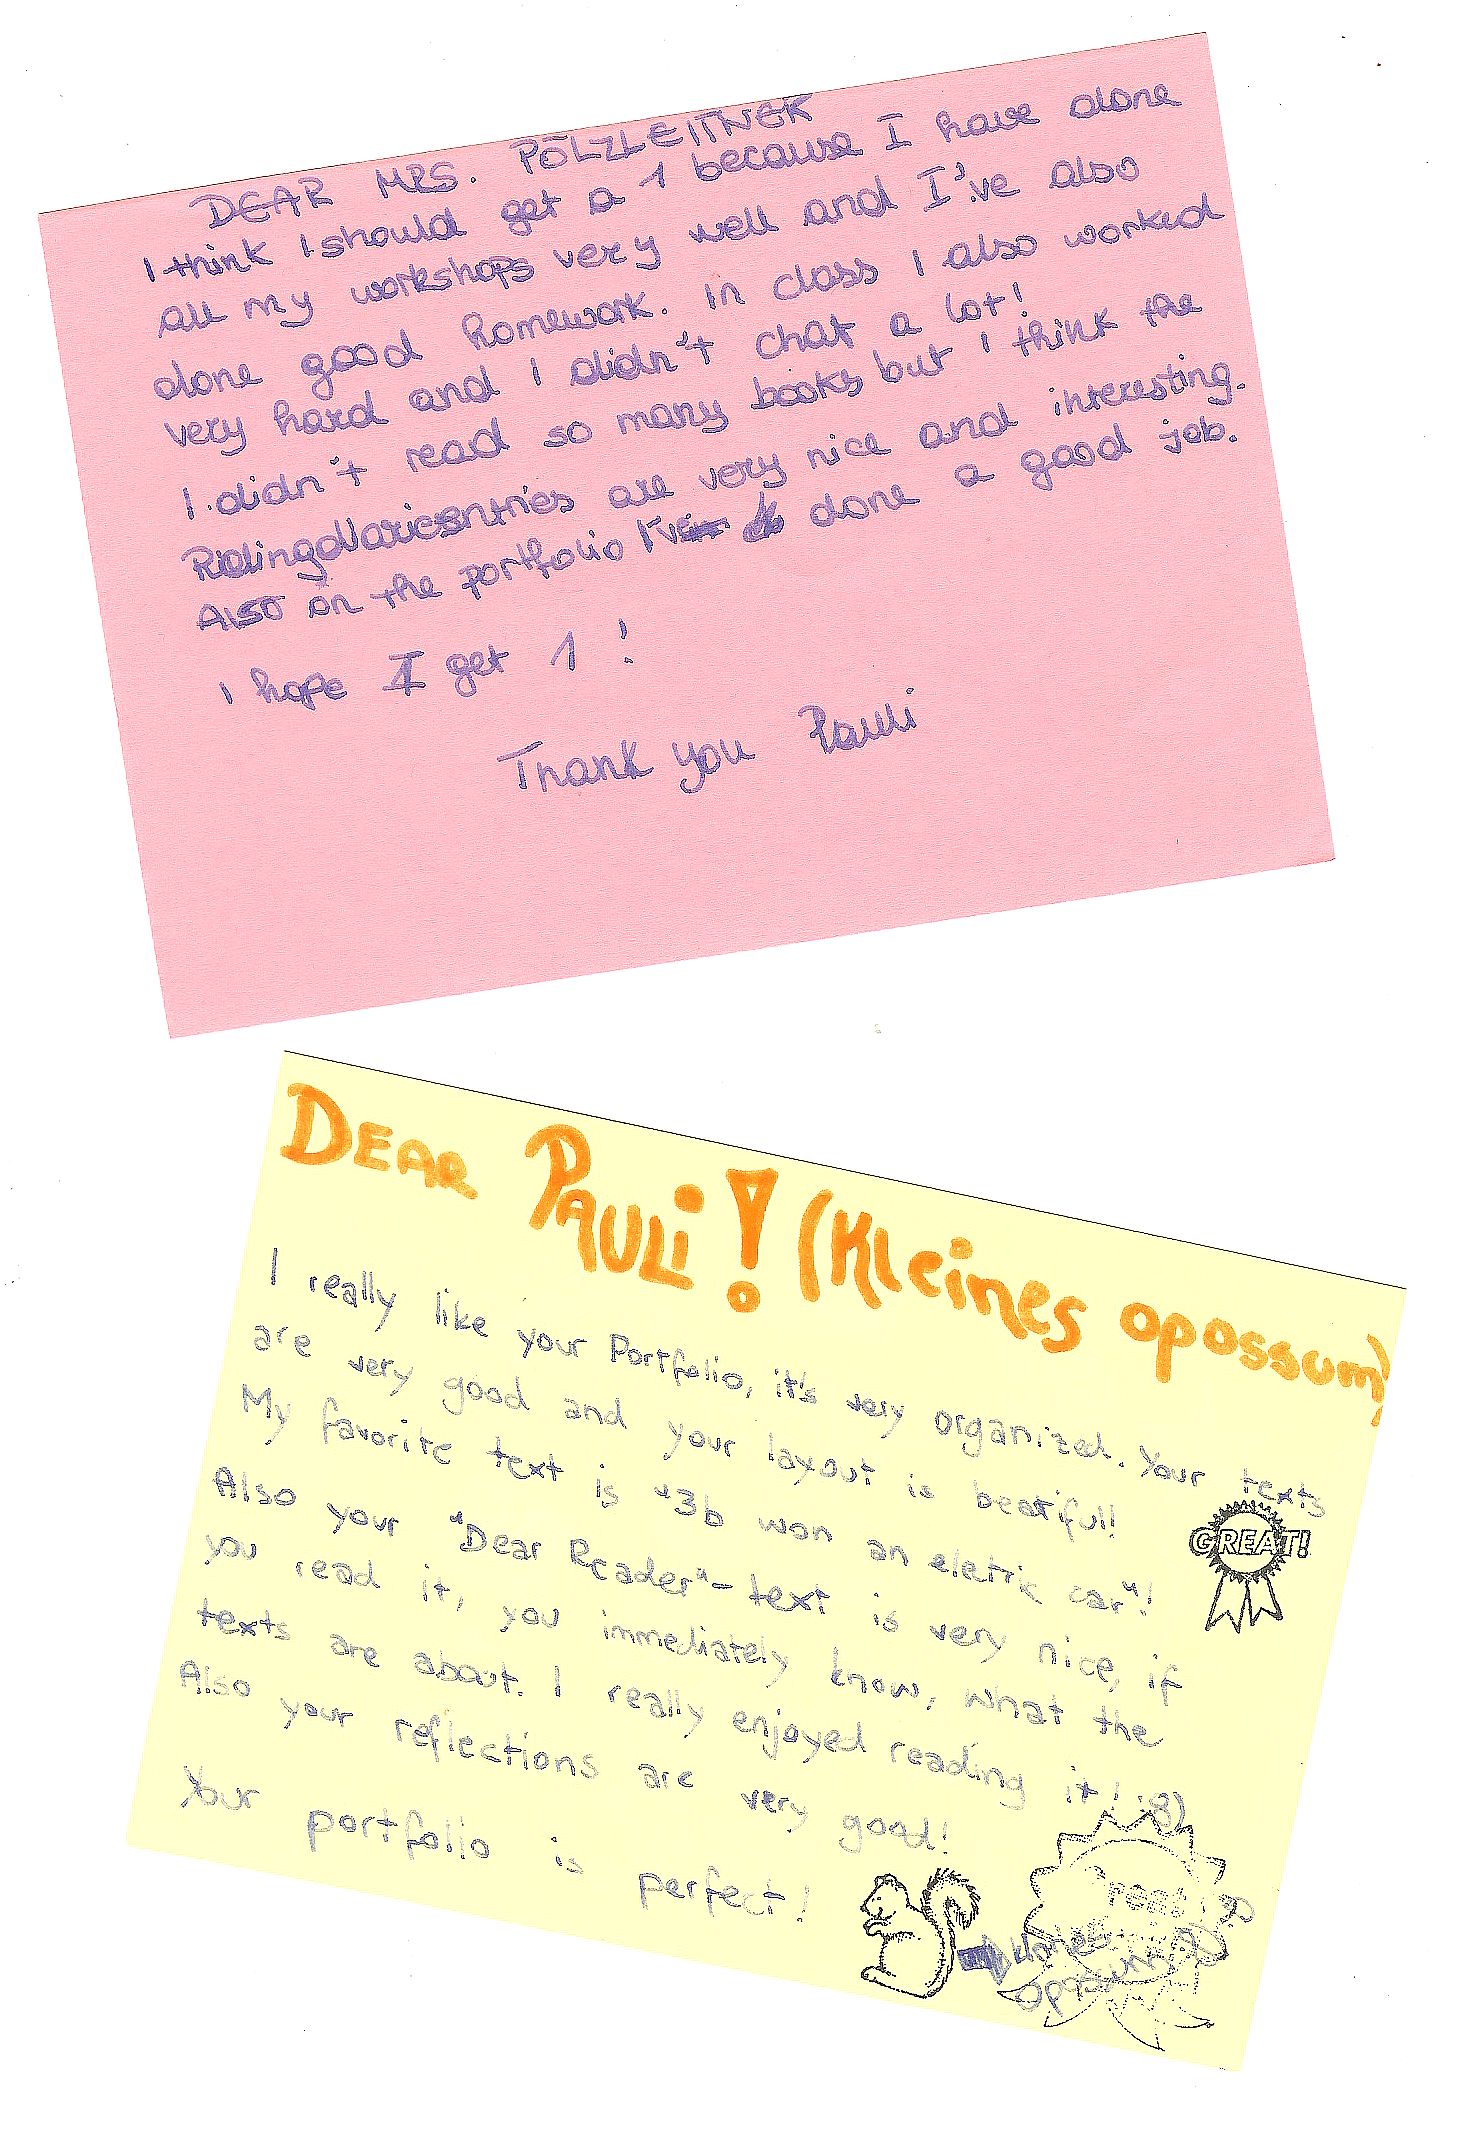 DEAR MRS. PÖLZLEITNER
I think I should get a 1 because I have done
all my workshops very well and I've also
done good homework. In class I also worked
very hard and I didn't chat a lot!
I didn't read so many books but I think the
entries are very nice and interesting.
Also on the portfolio I've done a good job.
I hope I get 1!
Thank you Pauli
DEAR PAULI! (Kleines opossum)
I really like your Portfolio, it's very organized. Your texts
are very good and your layout is beatiful!
My favorite text is "3b won an eletric car"!
GREAT!
Also your "Dear Reader"-text is very nice, if
you read it, you immediately know, what the
texts are about. I really enjoyed reading it! :8)
Also your reflections are very good!
Your portfolio is perfect!
Great
kleines
opossum